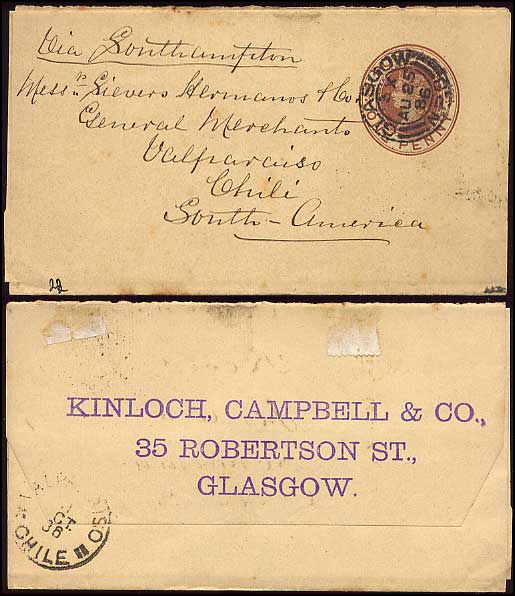 Via Southampton
Messrs Sievers Hermanos & Co.
General Merchants
Valparaiso
Chili
South-America
GLASGOW
AU 25
86
ONE PENNY
KINLOCH, CAMPBELL & CO.,
35 ROBERTSON ST.,
GLASGOW.
VALPARAISO
CHILE